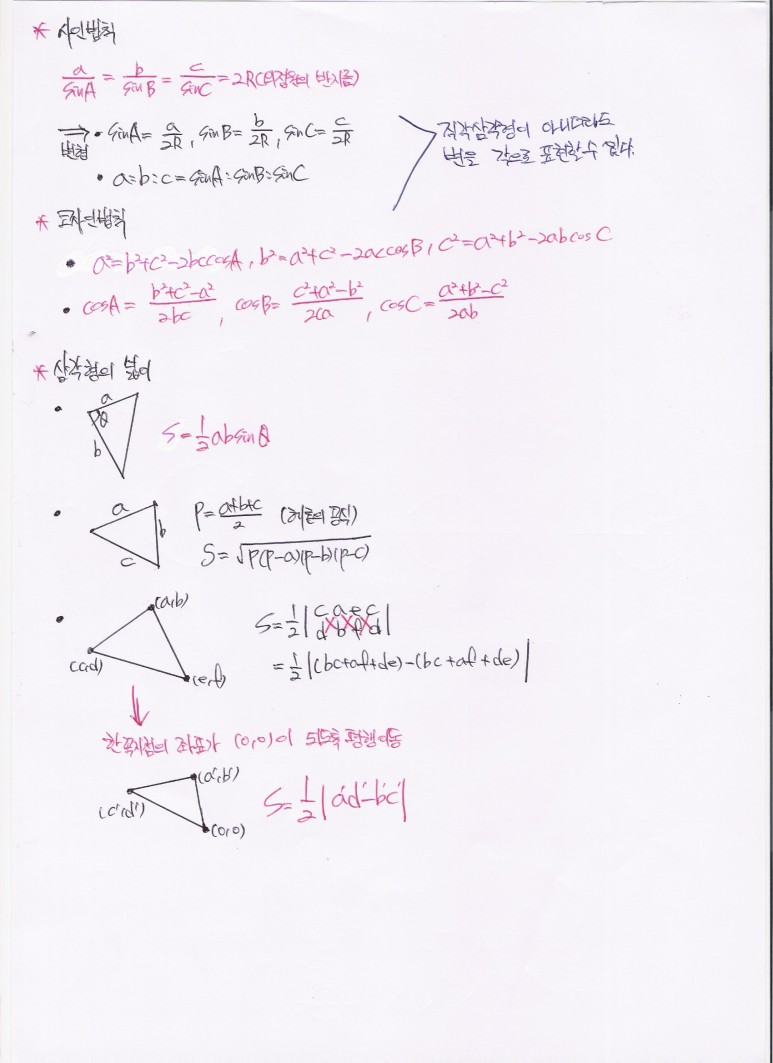 * 사인법칙
a/sinA = b/sinB = c/sinC = 2R(외접원의 반지름)
⇒ 변형 • sinA = a/2R, sinB = b/2R, sinC = c/2R
• a:b:c = sinA:sinB:sinC
직각삼각형이 아니더라도
변을 각으로 표현할 수 있다.
* 코사인법칙
• a²=b²+c²-2bccosA, b²=a²+c²-2accosB, c²=a²+b²-2abcosC
• cosA = (b²+c²-a²)/2bc, cosB = (c²+a²-b²)/2ca, cosC = (a²+b²-c²)/2ab
* 삼각형의 넓이
•
a
θ
b
S = 1/2 absinθ
•
a
b
c
P = (a+b+c)/2 (헤론의 공식)
S = √P(P-a)(P-b)(P-c)
•
(a,b)
(c,d)
(e,f)
S = 1/2 | c a e c
d b f d |
= 1/2 |(bc+af+de)-(bc+af+de)|
한 꼭지점의 좌표가 (0,0)이 되도록 평행이동
(a',b')
(c',d')
(0,0)
S = 1/2 |a'd'-b'c'|